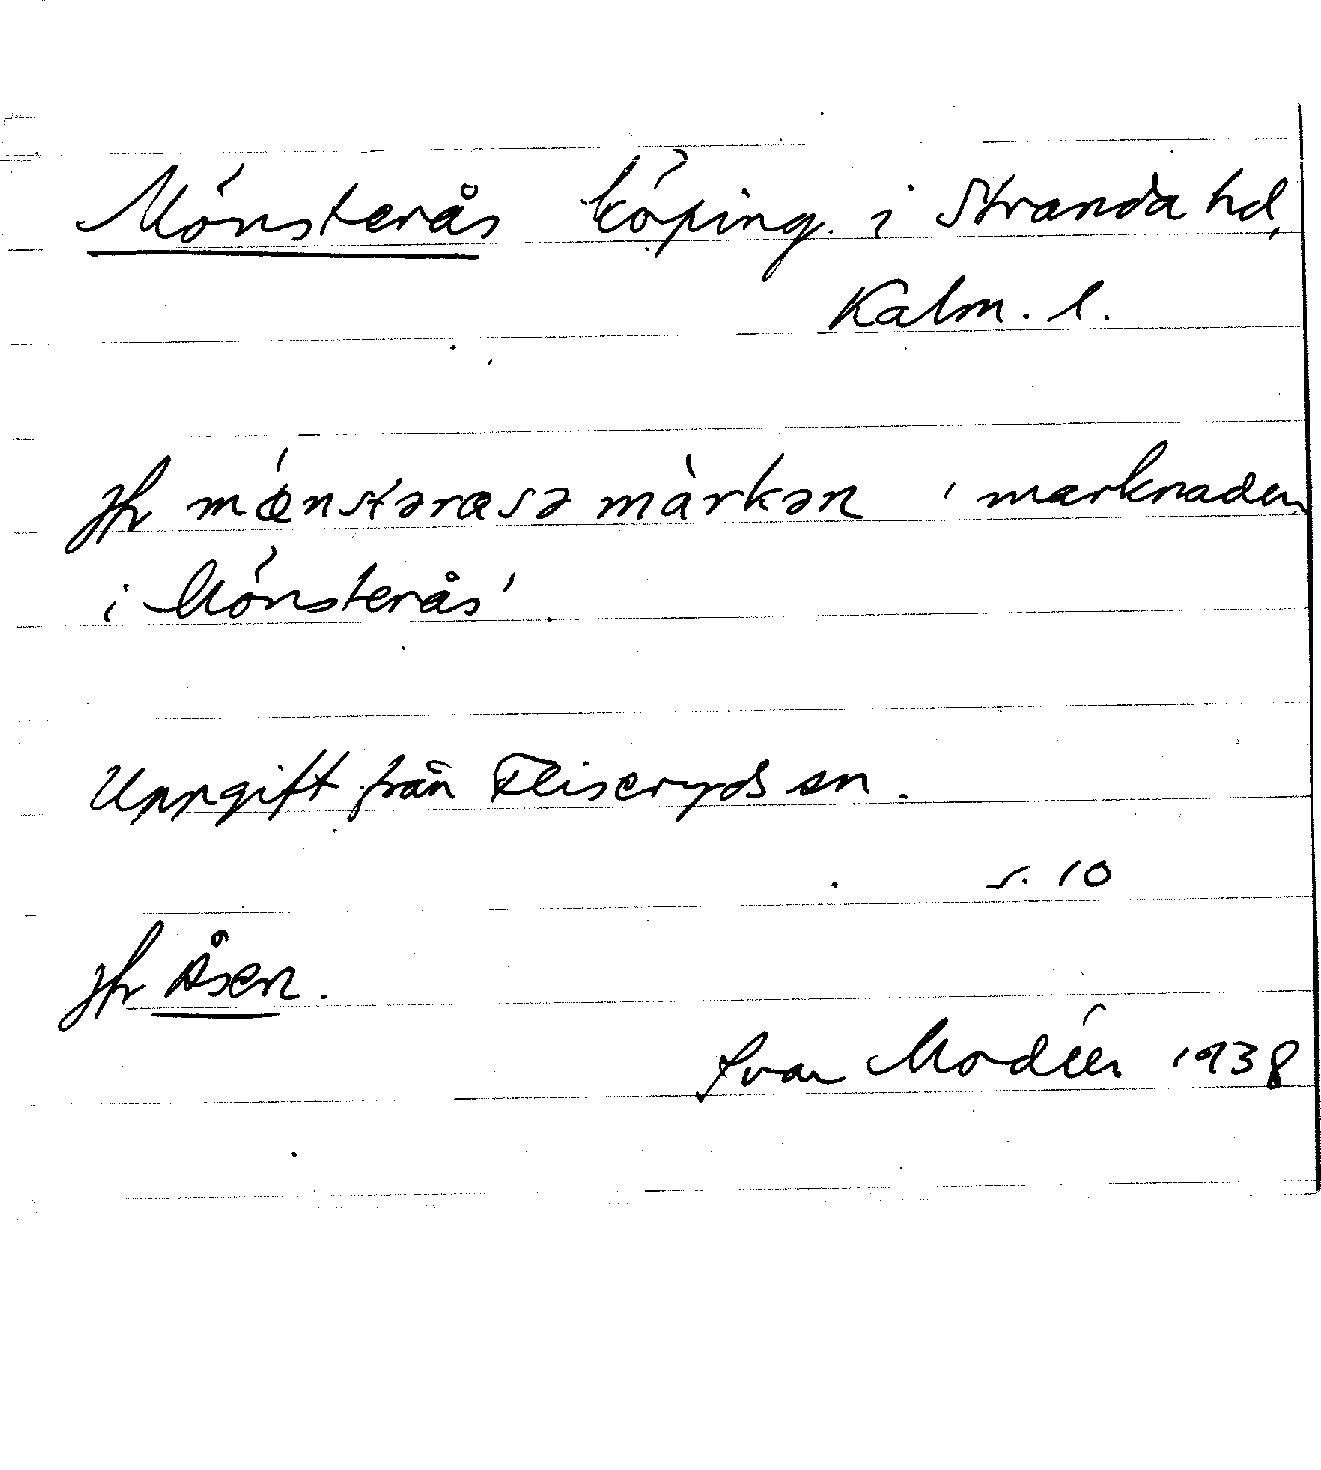 Mönsterås köping i Stranda hd,
Kalm. l.
Jfr mǿnstərasə màrkən 'marknaden
i Mönsterås'
Uppgift från Fliseryds sn.
s. 10
Jfr Åsen.
Ivar Modéer 1938